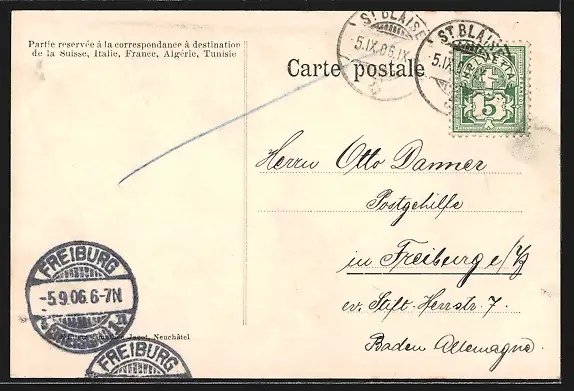 Partie reservée à la correspondance à destination
de la Suisse, Italie, France, Algérie, Tunisie
Carte postale
ST. BLAISE
5.IX.06.IX
ST. BLAISE
5.IX.06
HELVETIA
5
Herrn Otto Danner
Postgehilfe
in Freiburg i/B
ev. Stift. Herrstr. 7.
Baden Allemagne.
FREIBURG
-5.9.06.6-7N
Neuchâtel
FREIBURG